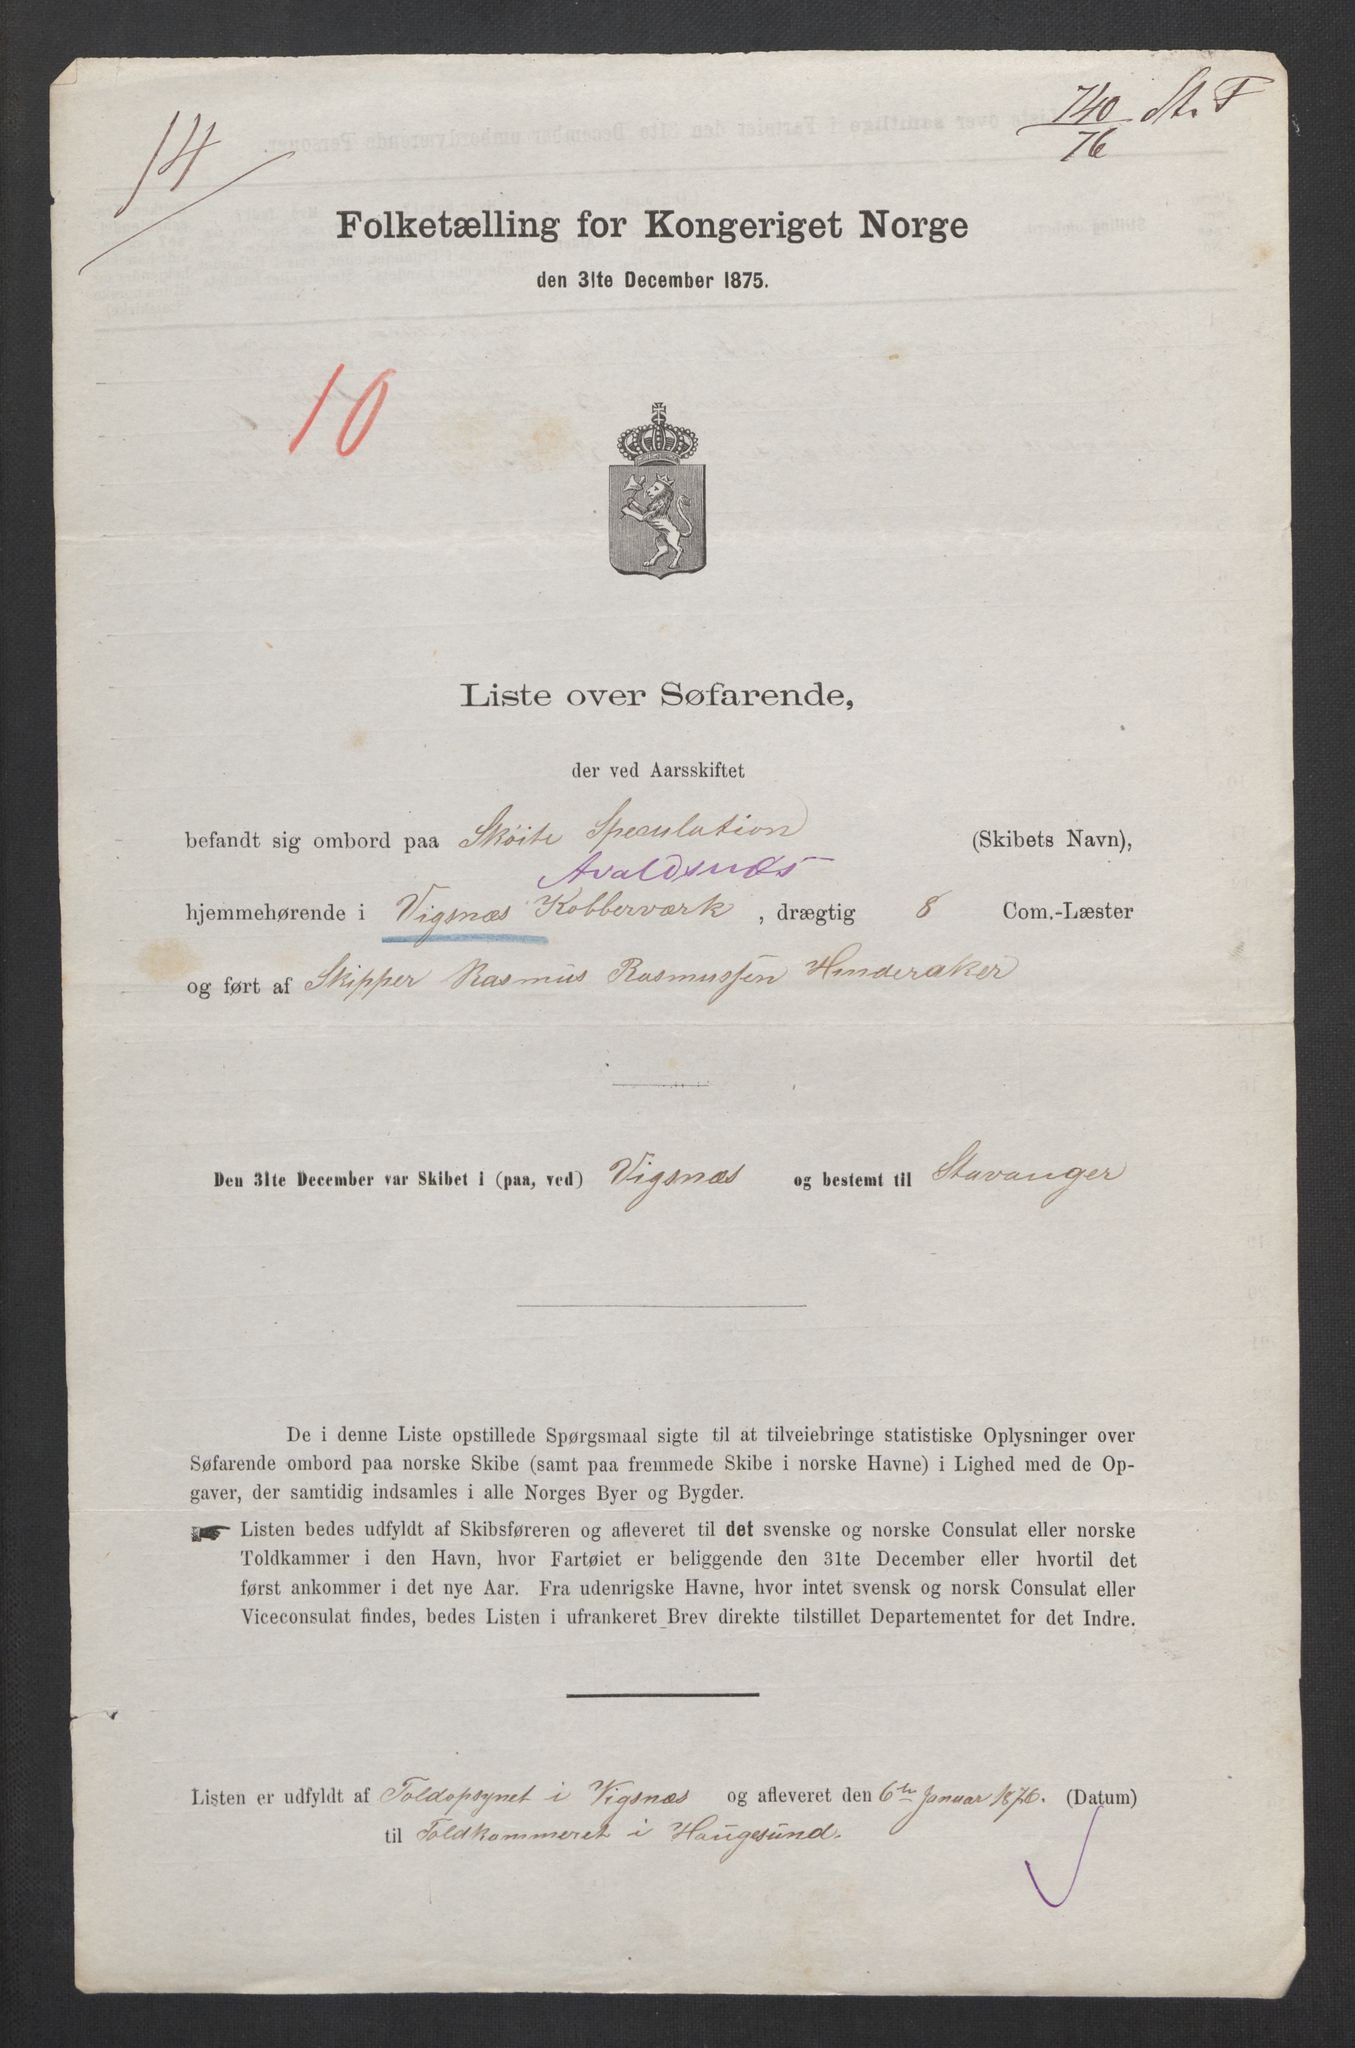 14
740 St. F
76
Folketælling for Kongeriget Norge
den 31te December 1875.
10
Liste over Søfarende,
der ved Aarsskiftet
befandt sig ombord paa Skøite Speculation (Skibets Navn),
Avaldsnæs
hjemmehørende i Vigsnæs Kobberværk, drægtig 8 Com.-Læster
og ført af Skipper Rasmus Rasmussen Hinderaker
Den 31te December var Skibet i (paa, ved) Vigsnæs og bestemt til Stavanger
De i denne Liste opstillede Spørgsmaal sigte til at tilveiebringe statistiske Oplysninger over
Søfarende ombord paa norske Skibe (samt paa fremmede Skibe i norske Havne) i Lighed med de Op-
gaver, der samtidig indsamles i alle Norges Byer og Bygder.
Listen bedes udfyldt af Skibsføreren og afleveret til det svenske og norske Consulat eller norske
Toldkammer i den Havn, hvor Fartøiet er beliggende den 31te December eller hvortil det
først ankommer i det nye Aar. Fra udenrigske Havne, hvor intet svensk og norsk Consulat eller
Viceconsulat findes, bedes Listen i ufrankeret Brev direkte tilstillet Departementet for det Indre.
Listen er udfyldt af Toldopsynet i Vigsnæs og afleveret den 6te Januar 1876. (Datum)
til Toldkammeret i Haugesund.